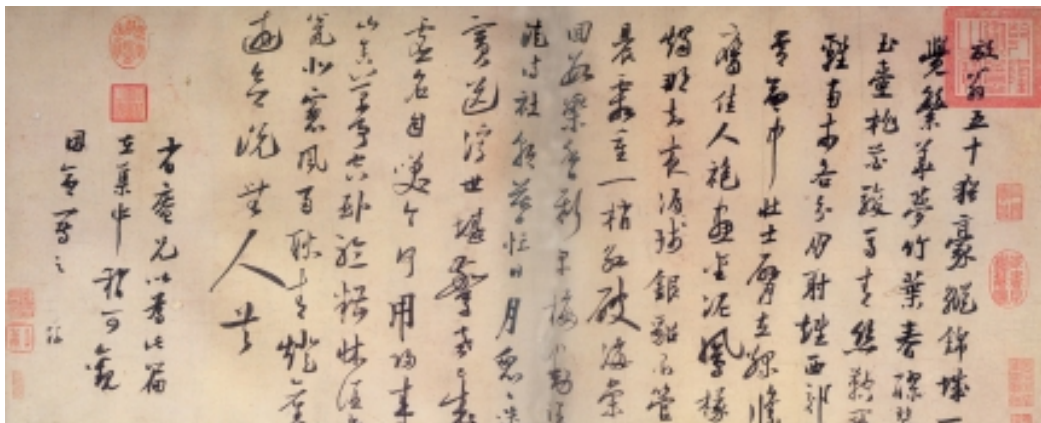 放翁五十猶豪縱錦城一
覺繁華夢竹葉春醪碧
玉壺桃花駿馬青絲鞚
雞南市各分朋射雉西郊
常命中壯士臂立綠絛
鷹佳人袍畫金泥鳳椽
燭那知夜漏殘銀貂不管
晨霜重一梢紅破海棠
回數蕊香新早梅動酒
徒詩社朝暮忙日月匆匆迭
賓送浮世堪驚老已成
虛名自笑今何用歸來
山舍萬事空臥聽糟床酒
甕北窗風雨耿青燈舊
遊欲說無人共
省庵兄以為此篇
在集中稍可觀
因命寫之游